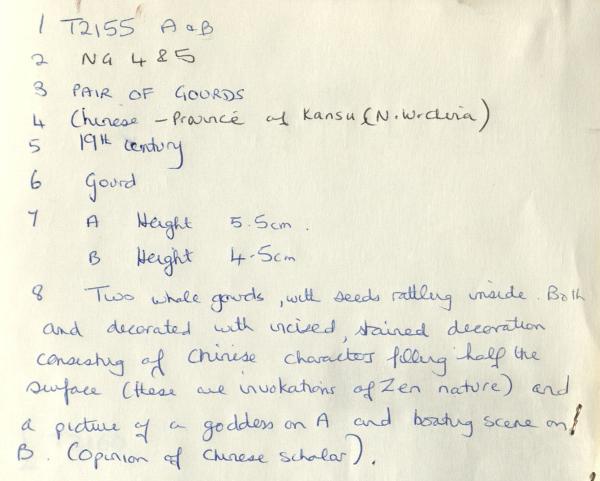 1 T2155 A & B
2 NG 4 & 5
3 PAIR OF GOURDS
4 Chinese - Province of Kansu (N.W. China)
5 19th century
6 Gourd
7 A Height 5.5cm.
B Height 4.5cm
8 Two whole gourds, with seeds rattling inside. Both
and decorated with incised, stained decoration
consisting of Chinese characters filling half the
surface (these are invokations of Zen nature) and
a picture of a goddess on A and boating scene on
B. (Opinion of Chinese scholar).